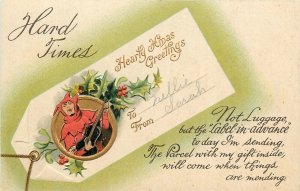 Hard
Times
Hearty Xmas
Greetings
To Lillie
From Sarah
"Not Luggage,"
but the "Label-in-advance"
to day I'm sending,
The Parcel with my gift inside,
will come when things
are mending.